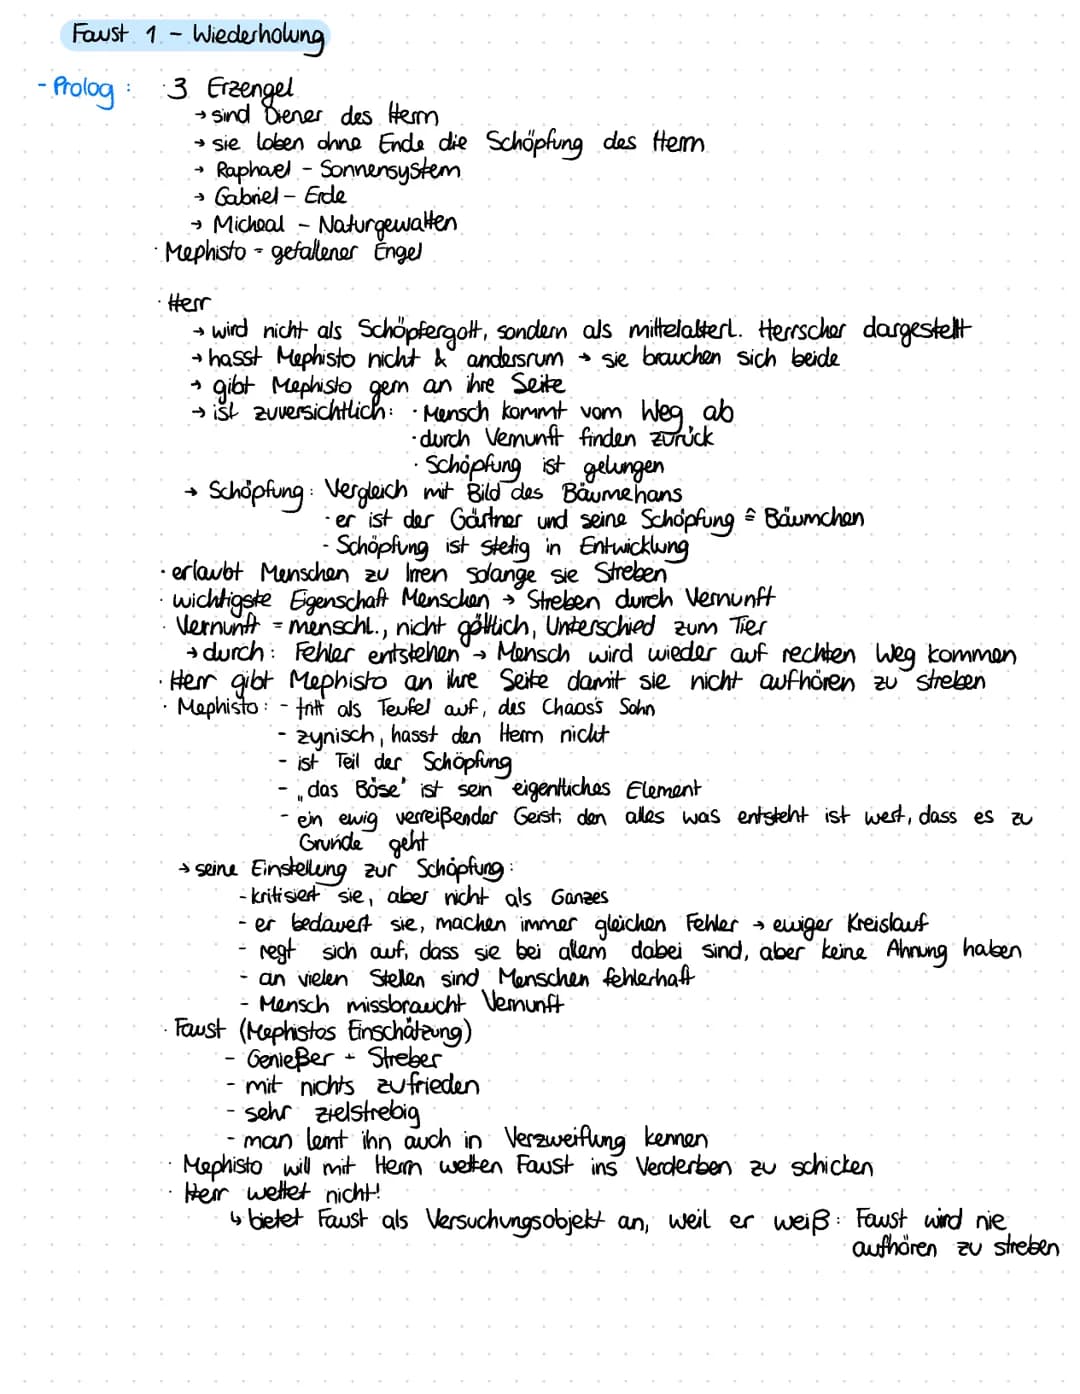 Faust 1 - Wiederholung
- Prolog : · 3 Erzengel
→ sind Diener des Herrn
→ sie loben ohne Ende die Schöpfung des Herrn
→ Raphael - Sonnensystem
→ Gabriel - Erde
→ Micheal - Naturgewalten
· Mephisto - gefallener Engel
· Herr
→ wird nicht als Schöpfergott, sondern als mittelalterl. Herrscher dargestellt
→ hasst Mephisto nicht & andersrum → sie brauchen sich beide
→ gibt Mephisto gern an ihre Seite
→ ist zuversichtlich: · Mensch kommt vom Weg ab
· durch Vernunft finden zurück
· Schöpfung ist gelungen
→ Schöpfung: Vergleich mit Bild des Bäumchans
· er ist der Gärtner und seine Schöpfung ≙ Bäumchen
- Schöpfung ist stetig in Entwicklung
· erlaubt Menschen zu Irren solange sie Streben
· wichtigste Eigenschaft Menschen → Streben durch Vernunft
· Vernunft = menschl., nicht göttlich, Unterschied zum Tier
→ durch: Fehler entstehen → Mensch wird wieder auf rechten Weg kommen
· Herr gibt Mephisto an ihre Seite damit sie nicht aufhören zu streben
· Mephisto: - tritt als Teufel auf, des Chaos's Sohn
- zynisch, hasst den Herrn nicht
- ist Teil der Schöpfung
- „das Böse' ist sein eigentliches Element
- ein ewig verreißender Geist; den alles was entsteht ist wert, dass es zu
Grunde geht
→ seine Einstellung zur Schöpfung:
- kritisiert sie, aber nicht als Ganzes
- er bedauert sie, machen immer gleichen Fehler → ewiger Kreislauf
- regt sich auf, dass sie bei allem dabei sind, aber keine Ahnung haben
- an vielen Stellen sind Menschen fehlerhaft
- Mensch missbraucht Vernunft
· Faust (Mephistos Einschätzung)
- Genießer + Streber
- mit nichts zufrieden
- sehr zielstrebig
- man lernt ihn auch in Verzweiflung kennen
· Mephisto will mit Herrn wetten Faust ins Verderben zu schicken
· Herr wettet nicht!
↳ bietet Faust als Versuchungsobjekt an, weil er weiß: Faust wird nie
aufhören zu streben